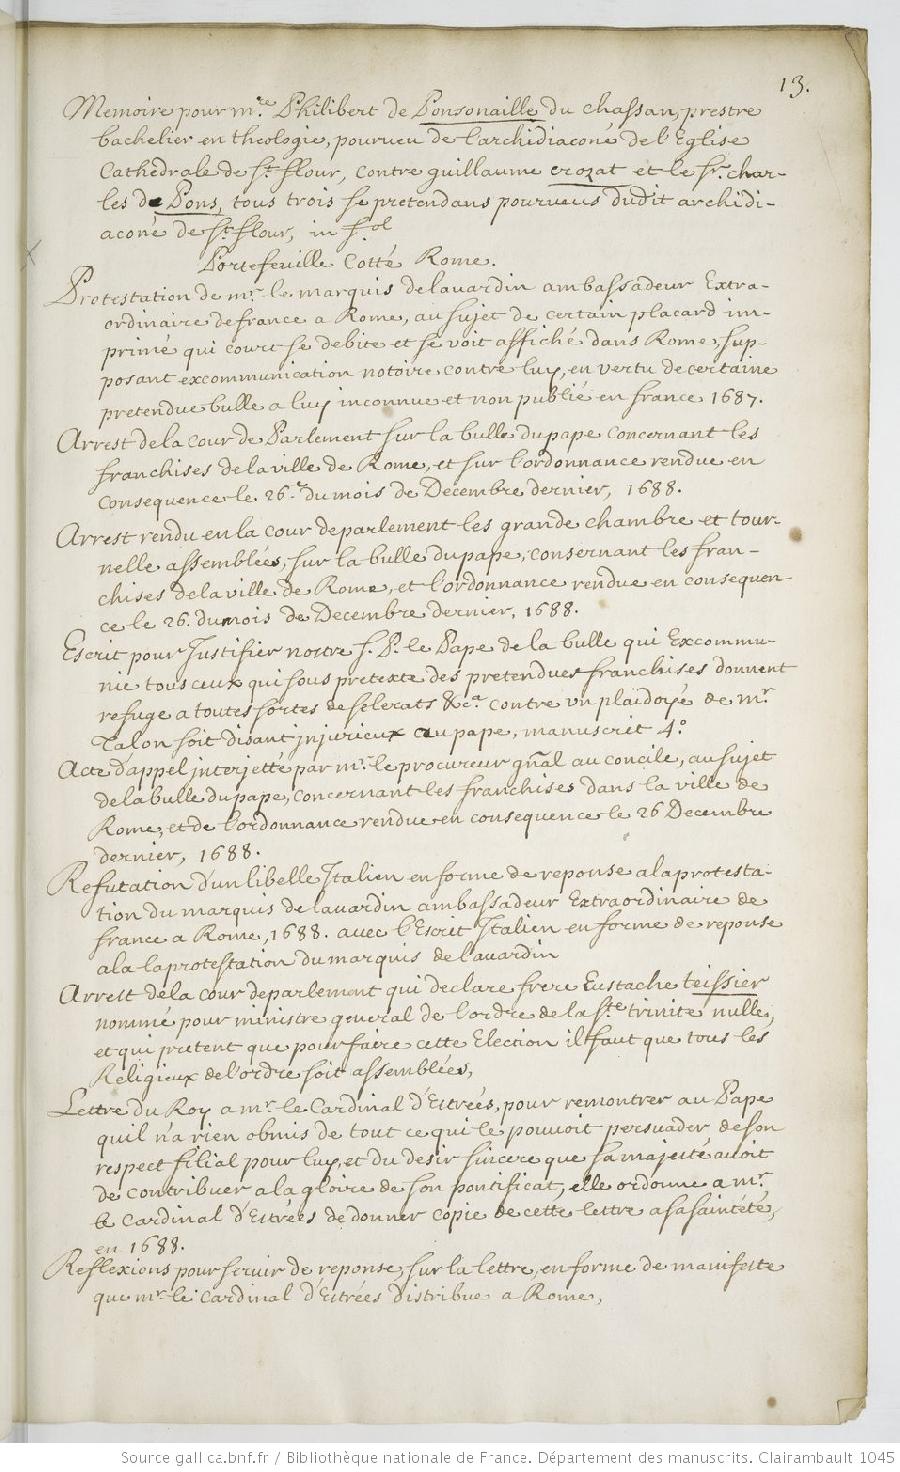 13.
Memoire pour mre Philibert de Ponsonaille du chassan, prestre
bachelier en theologie, pourveu de l'archidiaconé de l'Eglise
Cathedrale de St. flour, contre guillaume crozat et le Sr. char-
les de Pons, tous trois se pretendans pourveus dudit archidi-
aconé de St. flour, in fol
Portefeuille Cotté Rome.
Protestation de mr. le marquis de lavardin ambassadeur Extra-
ordinaire de france a Rome, au sujet de certain placard im-
primé qui court se debite et se voit affiché dans Rome, sup-
posant excommunication notoire contre luy, en vertu de certaine
pretendue bulle a luy inconnue et non publié en france 1687.
Arrest de la cour de Parlement sur la bulle du pape concernant les
franchises de la ville de Rome, et sur l'ordonnance rendue en
consequence le 26e du mois de Decembre dernier, 1688.
Arrest rendu en la cour de parlement les grande chambre et tour-
nelle assemblées, sur la bulle du pape, consernant les fran-
chises de la ville de Rome, et l'ordonnance rendue en consequen-
ce le 26. du mois de Decembre dernier, 1688.
Escrit pour Justifier nostre S. P. le Pape de la bulle qui Excommu-
nie tous ceux qui sous pretexte des pretendues franchises donnent
refuge a toutes sortes de selerats &ca. contre un plaidoyé de mr
Talon soit disant injurieux au pape, manuscrit 4.o
Acte d'appel interjetté par mr. le procureur gñal au concile, au sujet
de la bulle du pape, concernant les franchises dans la ville de
Rome, et de l'ordonnance rendue en consequence le 26 Decembre
dernier, 1688.
Refutation d'un libelle Italien en forme de reponse a la protesta-
tion du marquis de lavardin ambassadeur Extraordinaire de
france a Rome, 1688. avec l'Escrit Italien en forme de reponse
a la laprotestation du marquis de lavardin
Arrest de la cour de parlement qui declare frere Eustache teissier
nommé pour ministre general de l'ordre de la Ste trinité nulle,
et qui pretent que pour faire cette Election il faut que tous les
Religieux de l'ordre soit assemblées,
Lettre du Roy a mr. le Cardinal d'Estrées, pour remontrer au Pape
qu'il n'a rien obmis de tout ce qui le pouvoit persuader de son
respect filial pour luy, et du desir sincere que sa majesté avoit
de contribuer a la gloire de son pontificat, elle ordonne a mr.
le Cardinal d'Estrées de donner copie de cette lettre a sa sainteté,
en 1688.
Reflexions pour servir de reponse, sur la lettre, en forme de manifeste
que mr. le Cardinal d'Estrées distribue a Rome,
Source gallica.bnf.fr / Bibliothèque nationale de France. Département des manuscrits. Clairambault 1045